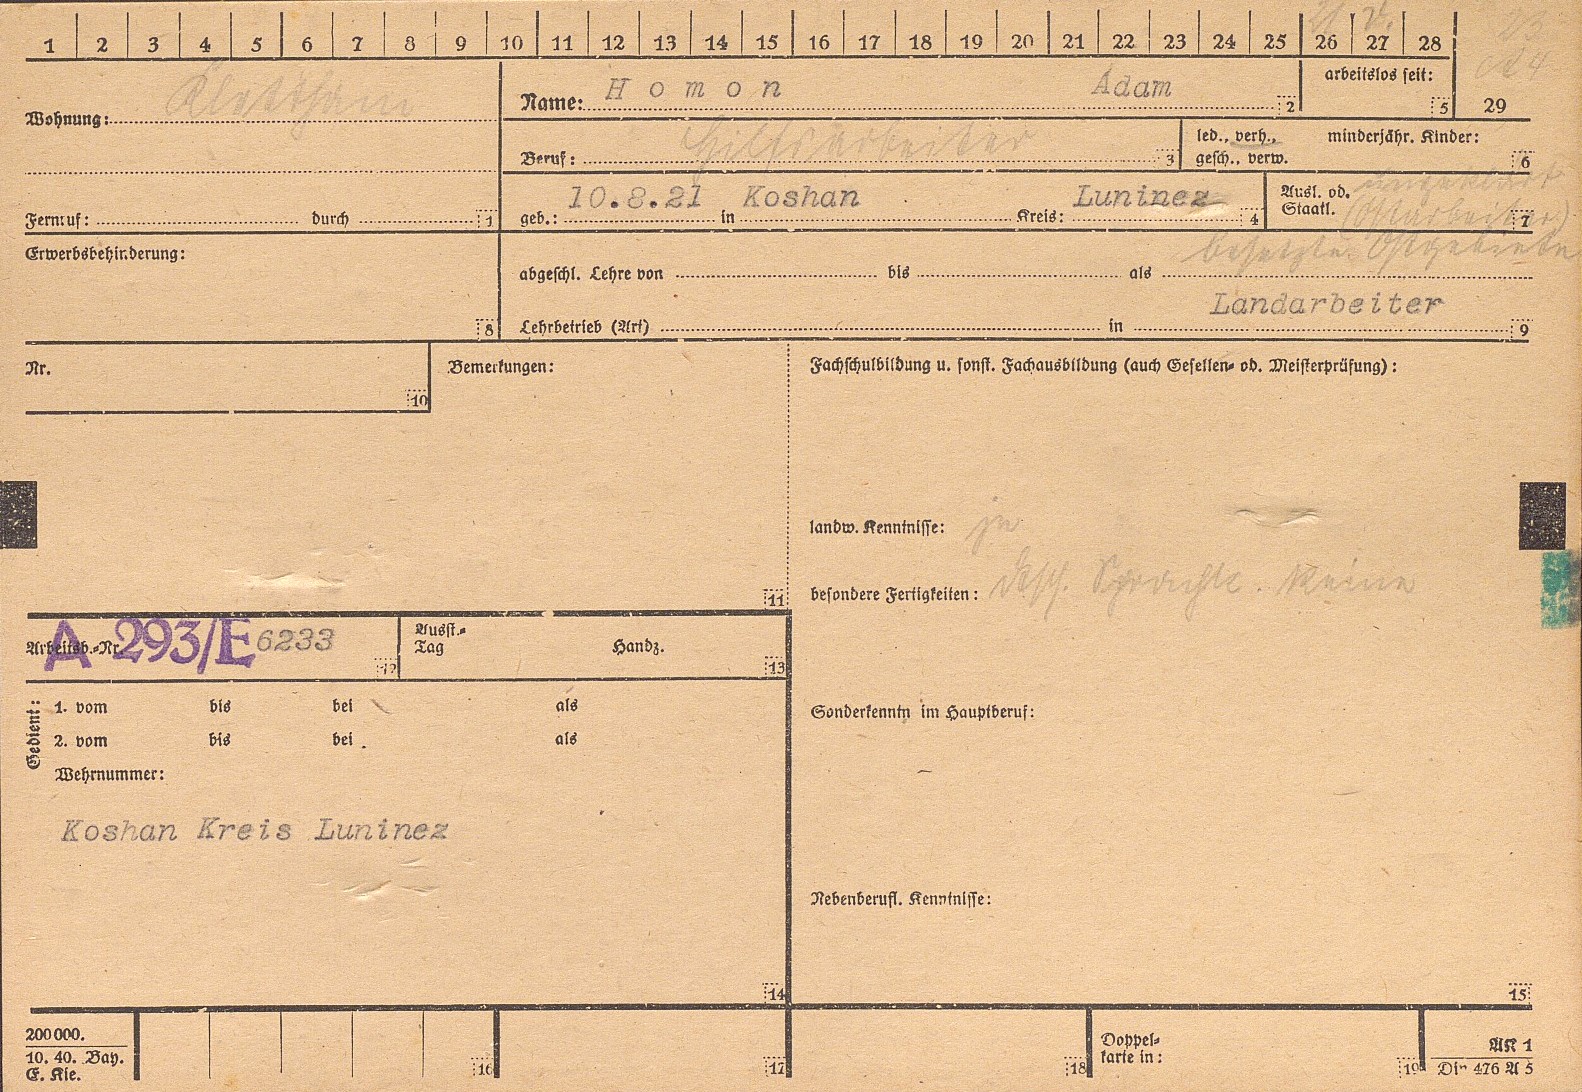 1 2 3 4 5 6 7 8 9 10 11 12 13 14 15 16 17 18 19 20 21 22 23 24 25 26 27 28
Wohnung: Klettham
Name: Homon Adam 2
arbeitslos seit: 5
29
Beruf: Hilfsarbeiter 3
led., verh., minderjähr. Kinder:
gesch., verw. 6
Fernruf: durch 1
geb.: 10.8.21 in Koshan Kreis: Luninez 4
Ausl. od. ungeklärt
Staatl. (Ostarbeiter) 7
besetzte Ostgebiete
Erwerbsbehinderung:
8
abgeschl. Lehre von bis als
Landarbeiter
Lehrbetrieb (Art) in 9
Nr.
10
Bemerkungen:
11
Fachschulbildung u. sonst. Fachausbildung (auch Gesellen- od. Meisterprüfung):
landw. Kenntnisse: ja
besondere Fertigkeiten: dtsch. Sprachk. keine
Arbeitsb.-Nr. A 293/E 6233 12
Ausst.-
Tag Handz. 13
Gedient:
1. vom bis bei als
2. vom bis bei als
Wehrnummer:
Koshan Kreis Luninez
14
Sonderkenntn im Hauptberuf:
Nebenberufl. Kenntnisse:
15
200000.
10. 40. Bay.
E. Kie.
16
17
18
Doppel-
karte in: 19
AK 1
Din 476 A 5